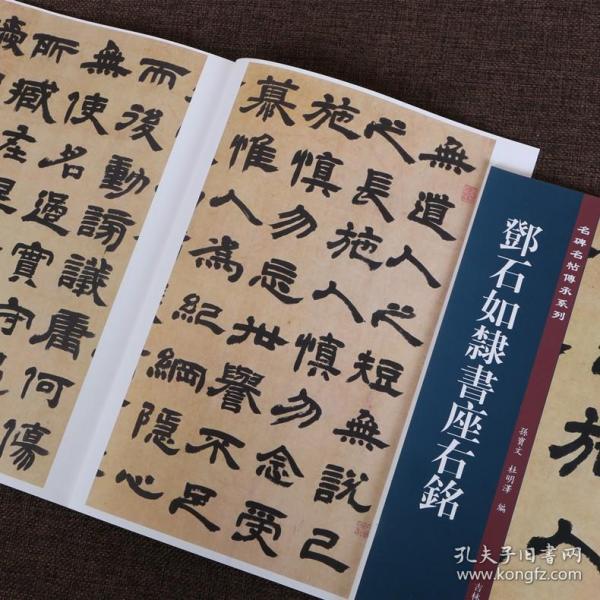 無道人之短無說己
之長施人慎勿念受
施慎勿忘世譽不足
慕惟人為紀綱隱心
而後動謗議庸何傷
無使名過實守
所臧在涅
名碑名帖傳承系列
鄧石如隸書座右銘
孫寶文 杜明澤 編
吉林
施
人
孔夫子旧书网
www.kongfz.com